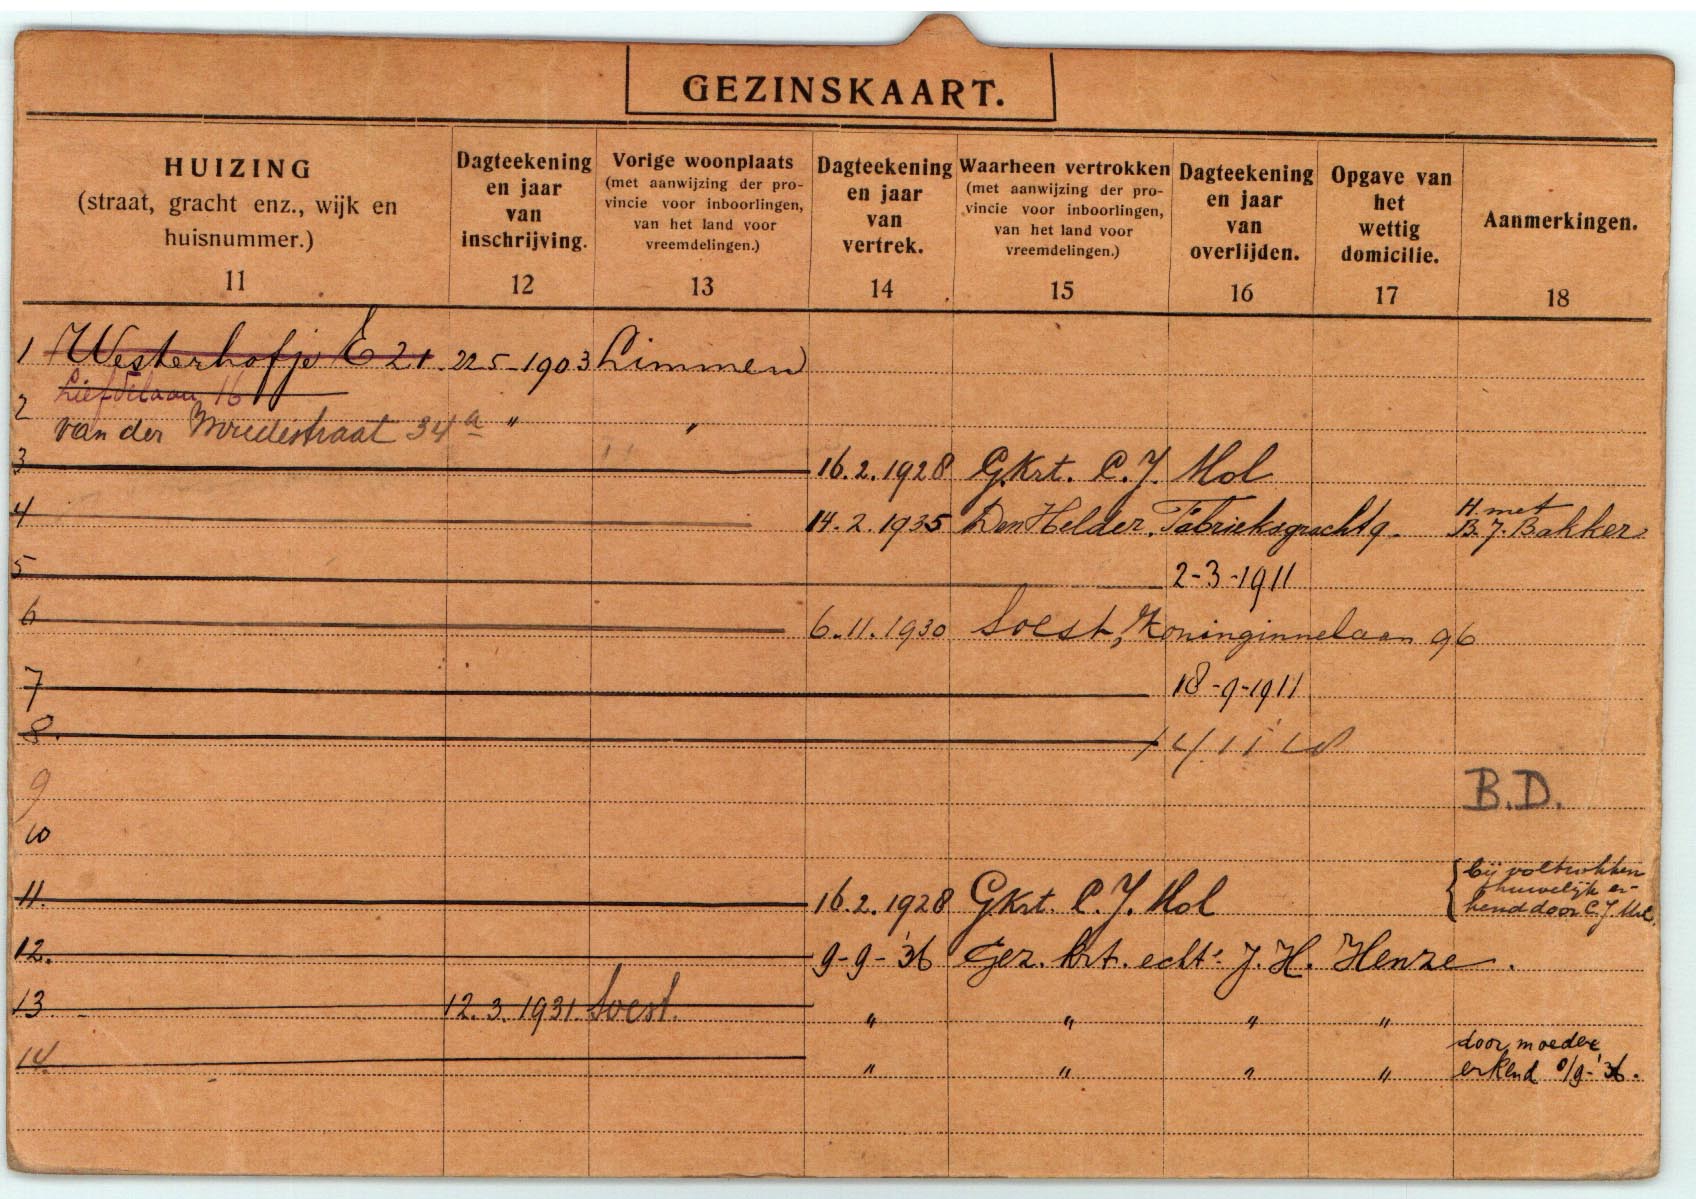 GEZINSKAART.
HUIZING
(straat, gracht enz., wijk en
huisnummer.)
11
Dagteekening
en jaar
van
inschrijving.
12
Vorige woonplaats
(met aanwijzing der pro-
vincie voor inboorlingen,
van het land voor
vreemdelingen.)
13
Dagteekening
en jaar
van
vertrek.
14
Waarheen vertrokken
(met aanwijzing der pro-
vincie voor inboorlingen,
van het land voor
vreemdelingen.)
15
Dagteekening
en jaar
van
overlijden.
16
Opgave van
het
wettig
domicilie.
17
Aanmerkingen.
18
1 Westerhofje E 21. 22 5-1903 Limmen
Liefdelaan 16
2 van der 34a " "
3 16.2.1928 G.Krt. C.J. Mol
4 14.2.1935 Den Helder. Fabrieksgracht 9. H. met
B.J. Bakker
5 2-3-1911
6 6.11.1930 Soest, Koninginnelaan 96
7 18-9-1911
8. 14 11 18
9 B.D.
10
11. 16.2.1928 GKrt. C.J. Mol { bij voltrokken
huwelijk er-
kend door C.J. Mol.
12. 9-9-'36 Gez. krt. echt. J.H. Henze.
13 12.3.1931. Soest. " " " "
14. " " " " door moeder
erkend 8/9-'36.